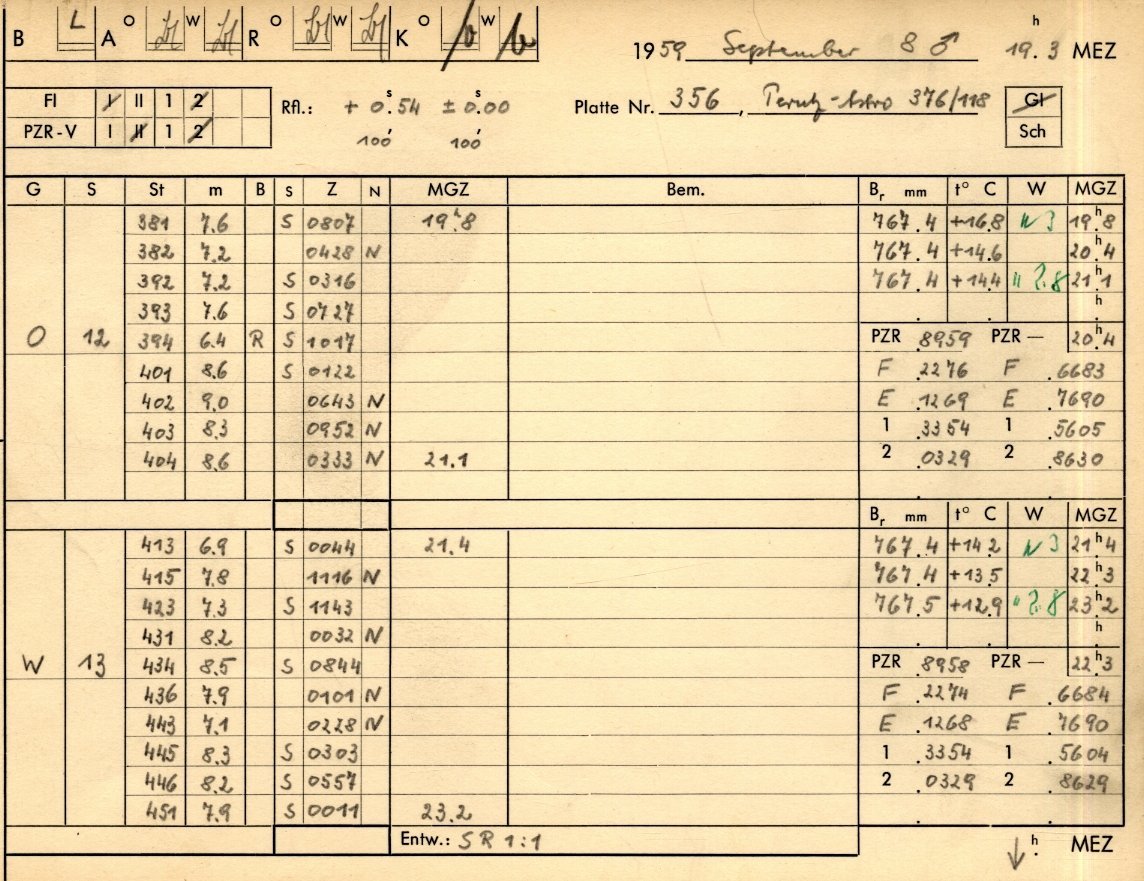 B L A O W R O W K O W h
1959 September 8 ♂ 19.3 MEZ
FI I II 1 2 Rfl.: + 0.54 s ± 0.00 s Platte Nr. 356, Perutz-Astro 376/118 Gl
PZR-V I II 1 2 100 100 Sch
G S St m B S Z N MGZ Bem. Br mm t° C W MGZ
381 7.6 S 0807 19h.8 767.4 +16.8 3 19h.8
382 7.2 0428 N 767.4 +14.6 20h.4
392 7.2 S 0316 767.4 +14.4 " 2.8 21h.1
393 7.6 S 0727 h
O 12 394 6.4 R S 1017 PZR 8959 PZR — 20h.4
401 8.6 S 0122 F .2276 F .6683
402 9.0 0643 N E .1269 E .7690
403 8.3 0952 N 1 .3354 1 .5605
404 8.6 0333 N 21.1 2 .0329 2 .8630
Br mm t° C W MGZ
413 6.9 S 0044 21.4 767.4 +14.2 3 21h.4
415 7.8 1116 N 767.4 +13.5 22h.3
423 7.3 S 1143 767.5 +12.9 " 2.8 23h.2
431 8.2 0032 N h
W 13 434 8.5 S 0844 PZR 8958 PZR — 22h.3
436 7.9 0101 N F .2274 F .6684
443 7.1 0228 N E .1268 E .7690
445 8.3 S 0303 1 .3354 1 .5604
446 8.2 S 0557 2 .0329 2 .8629
451 7.9 S 0011 23.2
Entw.: SR 1:1 ↓ h. MEZ